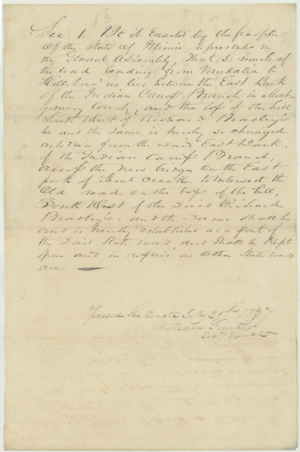 Sec. 1. Be it Enacted by the People
of the State of Illinois represented in
the General Assembly, That so much of
the road leading from Vandalia to
Hillsboro as lies between the East Bank
of the Indian Camp Branch in Mont
gomery County, and the top of the hill
South West of Richard Bradley's
be and the same is hereby so changed
as to run from the said East Bank
of the Indian Camp Branch,
across the new Bridge on the East
fork of Shoal Creek to intersect the
Old road on the top of the hill,
South West of the said Richard
Bradley's, and the same shall be
and is hereby established as a part of
the said State road, and shall be kept
open and in repair as other State roads
are
Passed the Senate July 20th 1837
William
Secy Senate